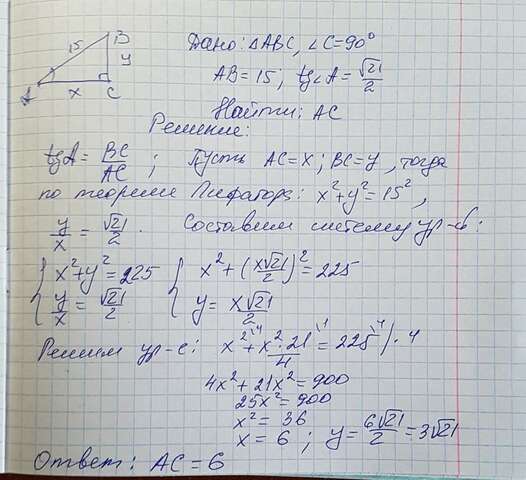 15 B
y
A x C
Дано: △ABC, ∠C=90°
AB=15; tg∠A=√21/2
Найти: AC
Решение:
tgA=BC/AC; Пусть AC=x; BC=y, тогда
по теореме Пифагора: x²+y²=15²,
y/x=√21/2. Составим систему ур-й:
{x²+y²=225 {x²+(x√21/2)²=225
{y/x=√21/2 {y=x√21/2
Решим ур-е: x²\4+x²·21/4\1=225\4)·4
4x²+21x²=900
25x²=900
x²=36
x=6; y=6√21/2=3√21
Ответ: AC=6